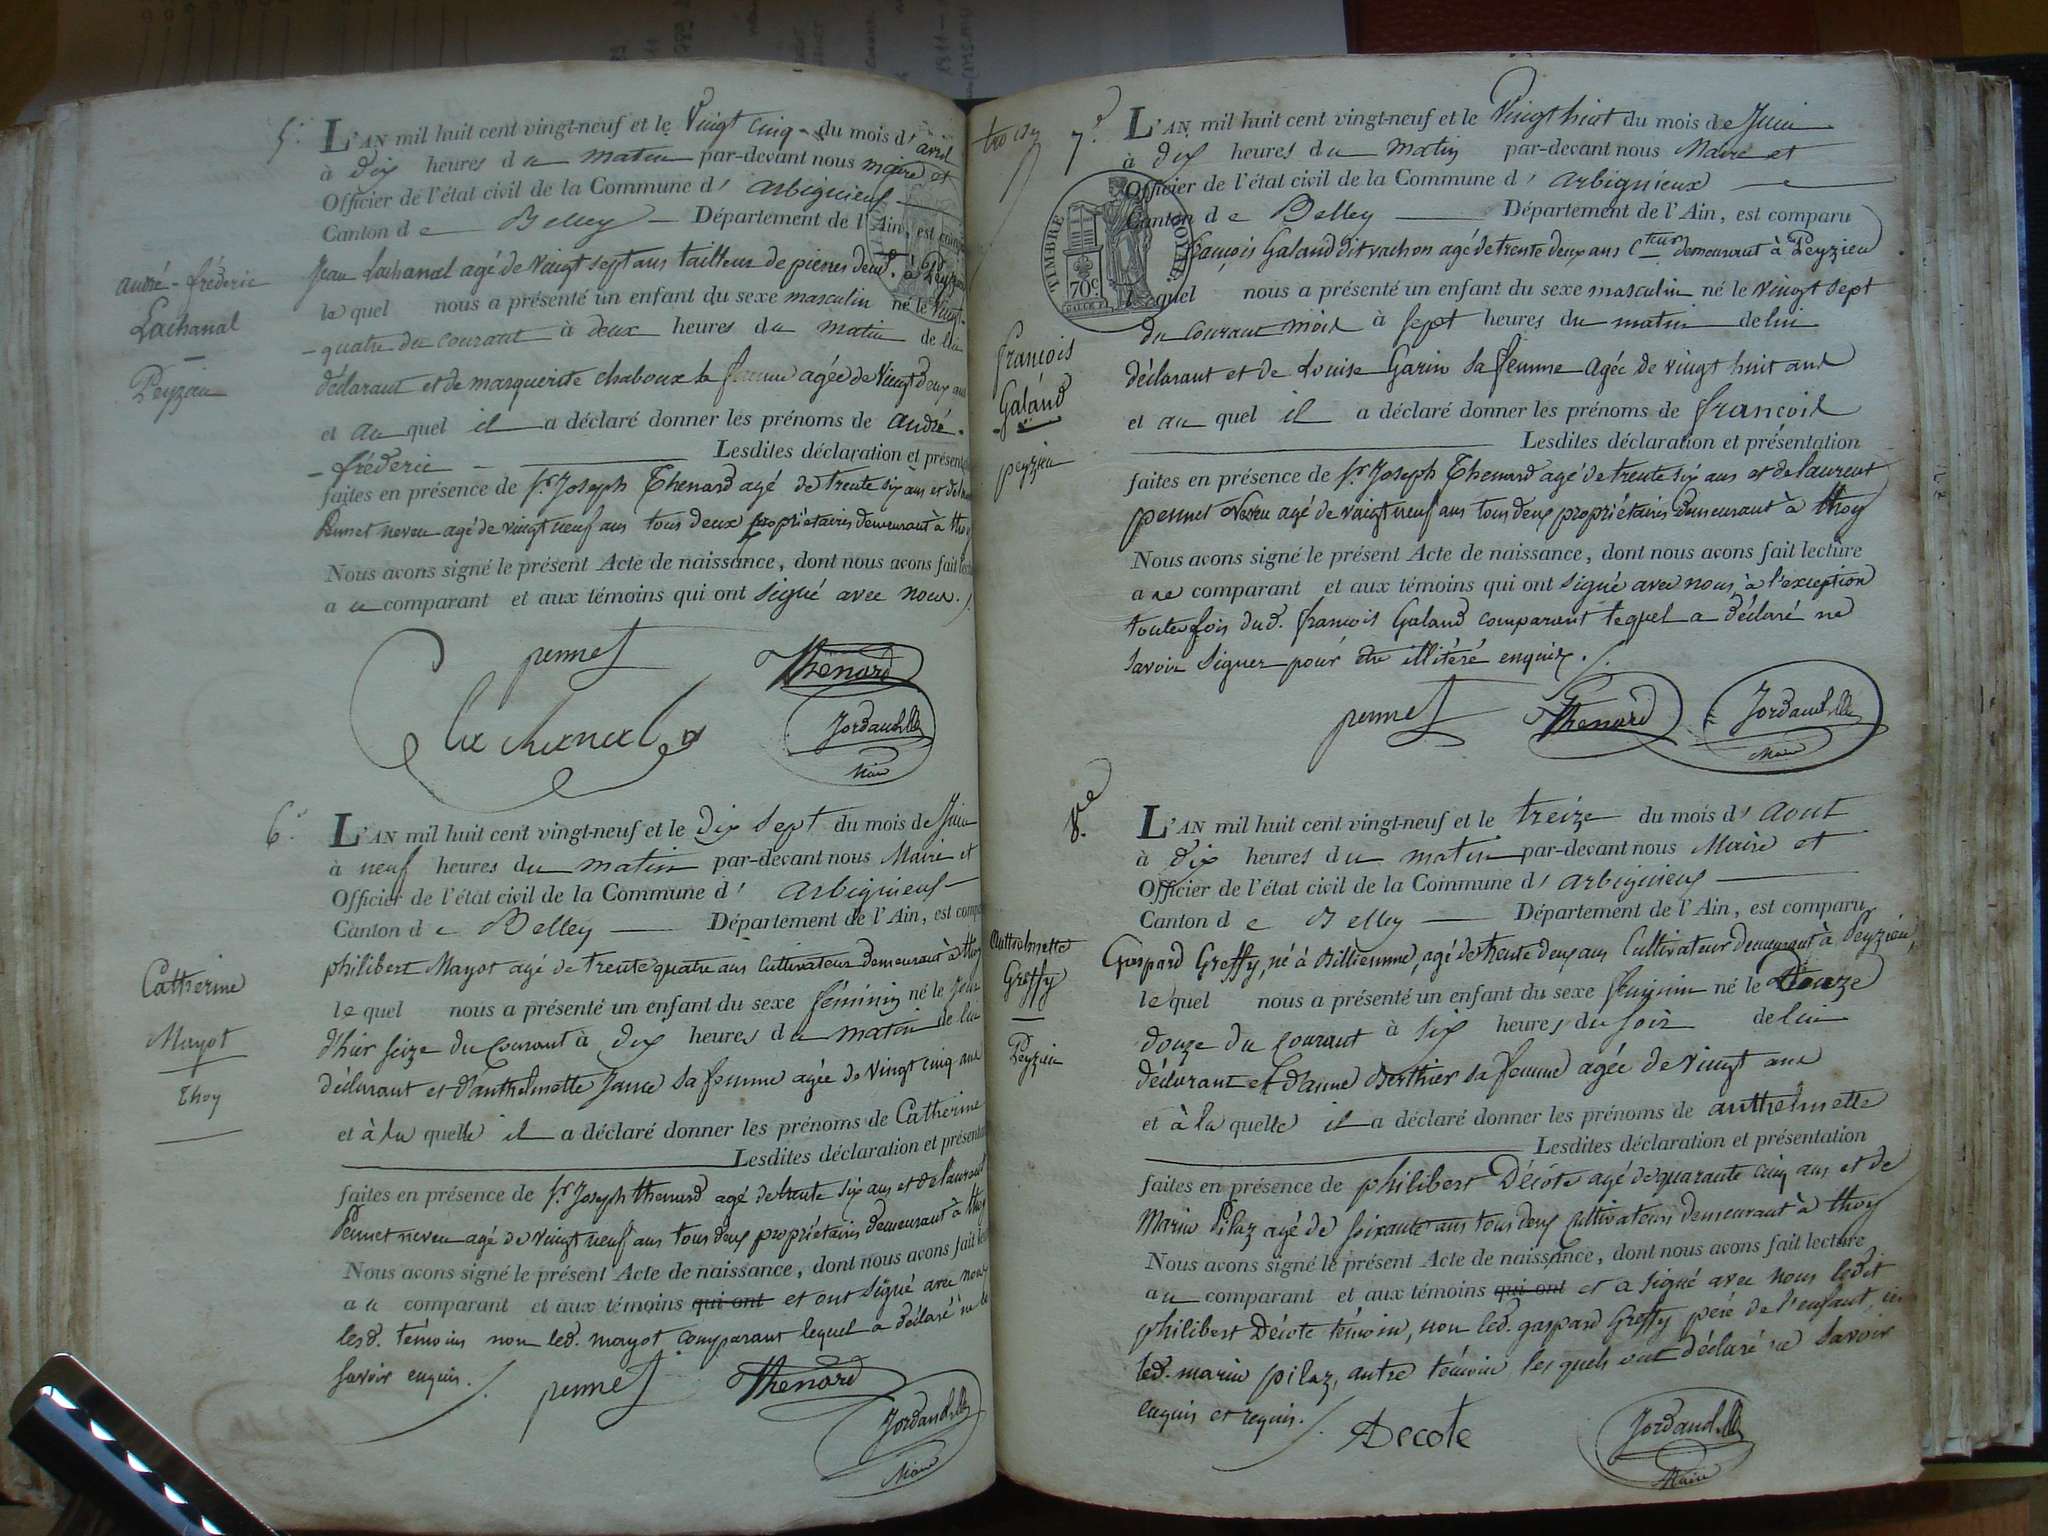 5.e
L'AN mil huit cent vingt-neuf et le Vingt cinq du mois d' avril
à dix heures du matin par-devant nous maire et
Officier de l'état civil de la Commune d' arbignieux
Canton de Belley Département de l'Ain, est comp
Jean Lachanal agé de vingt sept ans tailleur de pierres deud. à Peyzieu
le quel nous a présenté un enfant du sexe masculin né le vingt-
quatre du courant à deux heures du matin de lui
déclarant et de marguerite chaboux sa femme agée de Vingt deux ans
et au quel il a déclaré donner les prénoms de andré-
frédéric Lesdites déclaration et présent
faites en présence de Sr. Joseph Thenard agé de trente six ans et de
Pennet neveu agé de vingt neuf ans tous deux propriétaires demeurant à thoy
Nous avons signé le présent Acte de naissance, dont nous avons fait lect
au comparant et aux témoins qui ont signé avec nous.
andré-fréderic
Lachanal
Peyzieu
pennet Thenard
Lachanal Jordan
Maire
6.e
L'AN mil huit cent vingt-neuf et le dix sept du mois de Juin
à neuf heures du matin par-devant nous Maire et
Officier de l'état civil de la Commune d' arbignieux
Canton de Belley Département de l'Ain, est comp
philibert Mayot agé de trente quatre ans Cultivateur demeurant à thoy
le quel nous a présenté un enfant du sexe féminin né le jour
d'hier seize du courant à dix heures du matin de lui
déclarant et d'anthelmette Jance sa femme agée de vingt cinq ans
et à la quelle il a déclaré donner les prénoms de Catherine
Lesdites déclaration et présenta
faites en présence de Sr. Joseph thenard agé de trente six ans et de laurent
Pennet neveu agé de vingt neuf ans tous deux propriétaires demeurant à thoy
Nous avons signé le présent Acte de naissance, dont nous avons fait lec
au comparant et aux témoins qui ont et ont signé avec nous
lesd. témoins non led. mayot comparant lequel a déclaré ne le
savoir enquis.
Catherine
Mayot
Thoy
pennet Thenard
Jordan
Maire
7.e
L'AN mil huit cent vingt-neuf et le Vingt huit du mois de Juin
à dix heures du matin par-devant nous Maire et
Officier de l'état civil de la Commune d' arbignieux
Canton de Belley Département de l'Ain, est comparu
françois Galand dit vachon agé de trente deux ans Cteur demeurant à Peyzieu
le quel nous a présenté un enfant du sexe masculin né le vingt sept
du courant mois à sept heures du matin de lui
déclarant et de Louise Garin sa femme Agée de vingt huit ans
et au quel il a déclaré donner les prénoms de françois
Lesdites déclaration et présentation
faites en présence de Sr. Joseph Thenard agé de trente six ans et de laurent
pennet Neveu agé de vingt neuf ans tous deux propriétaires demeurant à thoy
Nous avons signé le présent Acte de naissance, dont nous avons fait lecture
au comparant et aux témoins qui ont signé avec nous, à l'exception
toutes fois dud. françois Galand comparant lequel a déclaré ne
savoir signer pour être illitéré enquis.
TIMBRE ROYAL
70c
françois
Galand
peyzieu
pennet Thenard Jordan
Maire
8.e
L'AN mil huit cent vingt-neuf et le treize du mois d' aout
à dix heures du matin par-devant nous Maire et
Officier de l'état civil de la Commune d' arbignieux
Canton de Belley Département de l'Ain, est comparu
Gaspard Greffy, né à Billiemme, agé de trente deux ans Cultivateur demeurant à Peyzieu,
le quel nous a présenté un enfant du sexe féminin né le Douze
douze du courant à six heures du soir de lui
déclarant et d'anne Berthier sa femme agée de vingt ans
et à la quelle il a déclaré donner les prénoms de anthelmette
Lesdites déclaration et présentation
faites en présence de philibert Décote agé de quarante cinq ans et de
Marin Pilaz agé de soixante ans tous deux Cultivateurs demeurant à thoy
Nous avons signé le présent Acte de naissance, dont nous avons fait lecture
au comparant et aux témoins qui ont et a signé avec nous ledit
philibert Décote témoin, non led. gaspard Greffy père de l'enfant, ni
led. marin pilaz, autre témoin lesquels ont déclaré ne savoir
enquis et requis.
Anthelmette
Greffy
Peyzieu
Decote Jordan
Maire